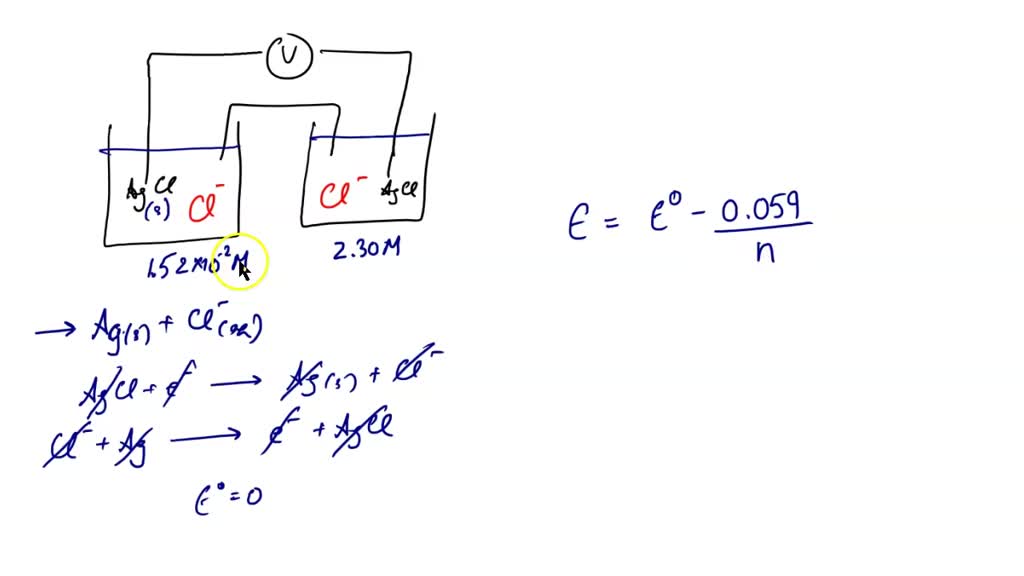 V
AgCl
(s)
Cl⁻
Cl⁻ AgCl
1.52×10⁻² M
2.30M
→ Ag(s) + Cl⁻(aq)
AgCl + e⁻ → Ag(s) + Cl⁻
Cl⁻ + Ag → e⁻ + AgCl
E° = 0
E = E° - 0.059
n